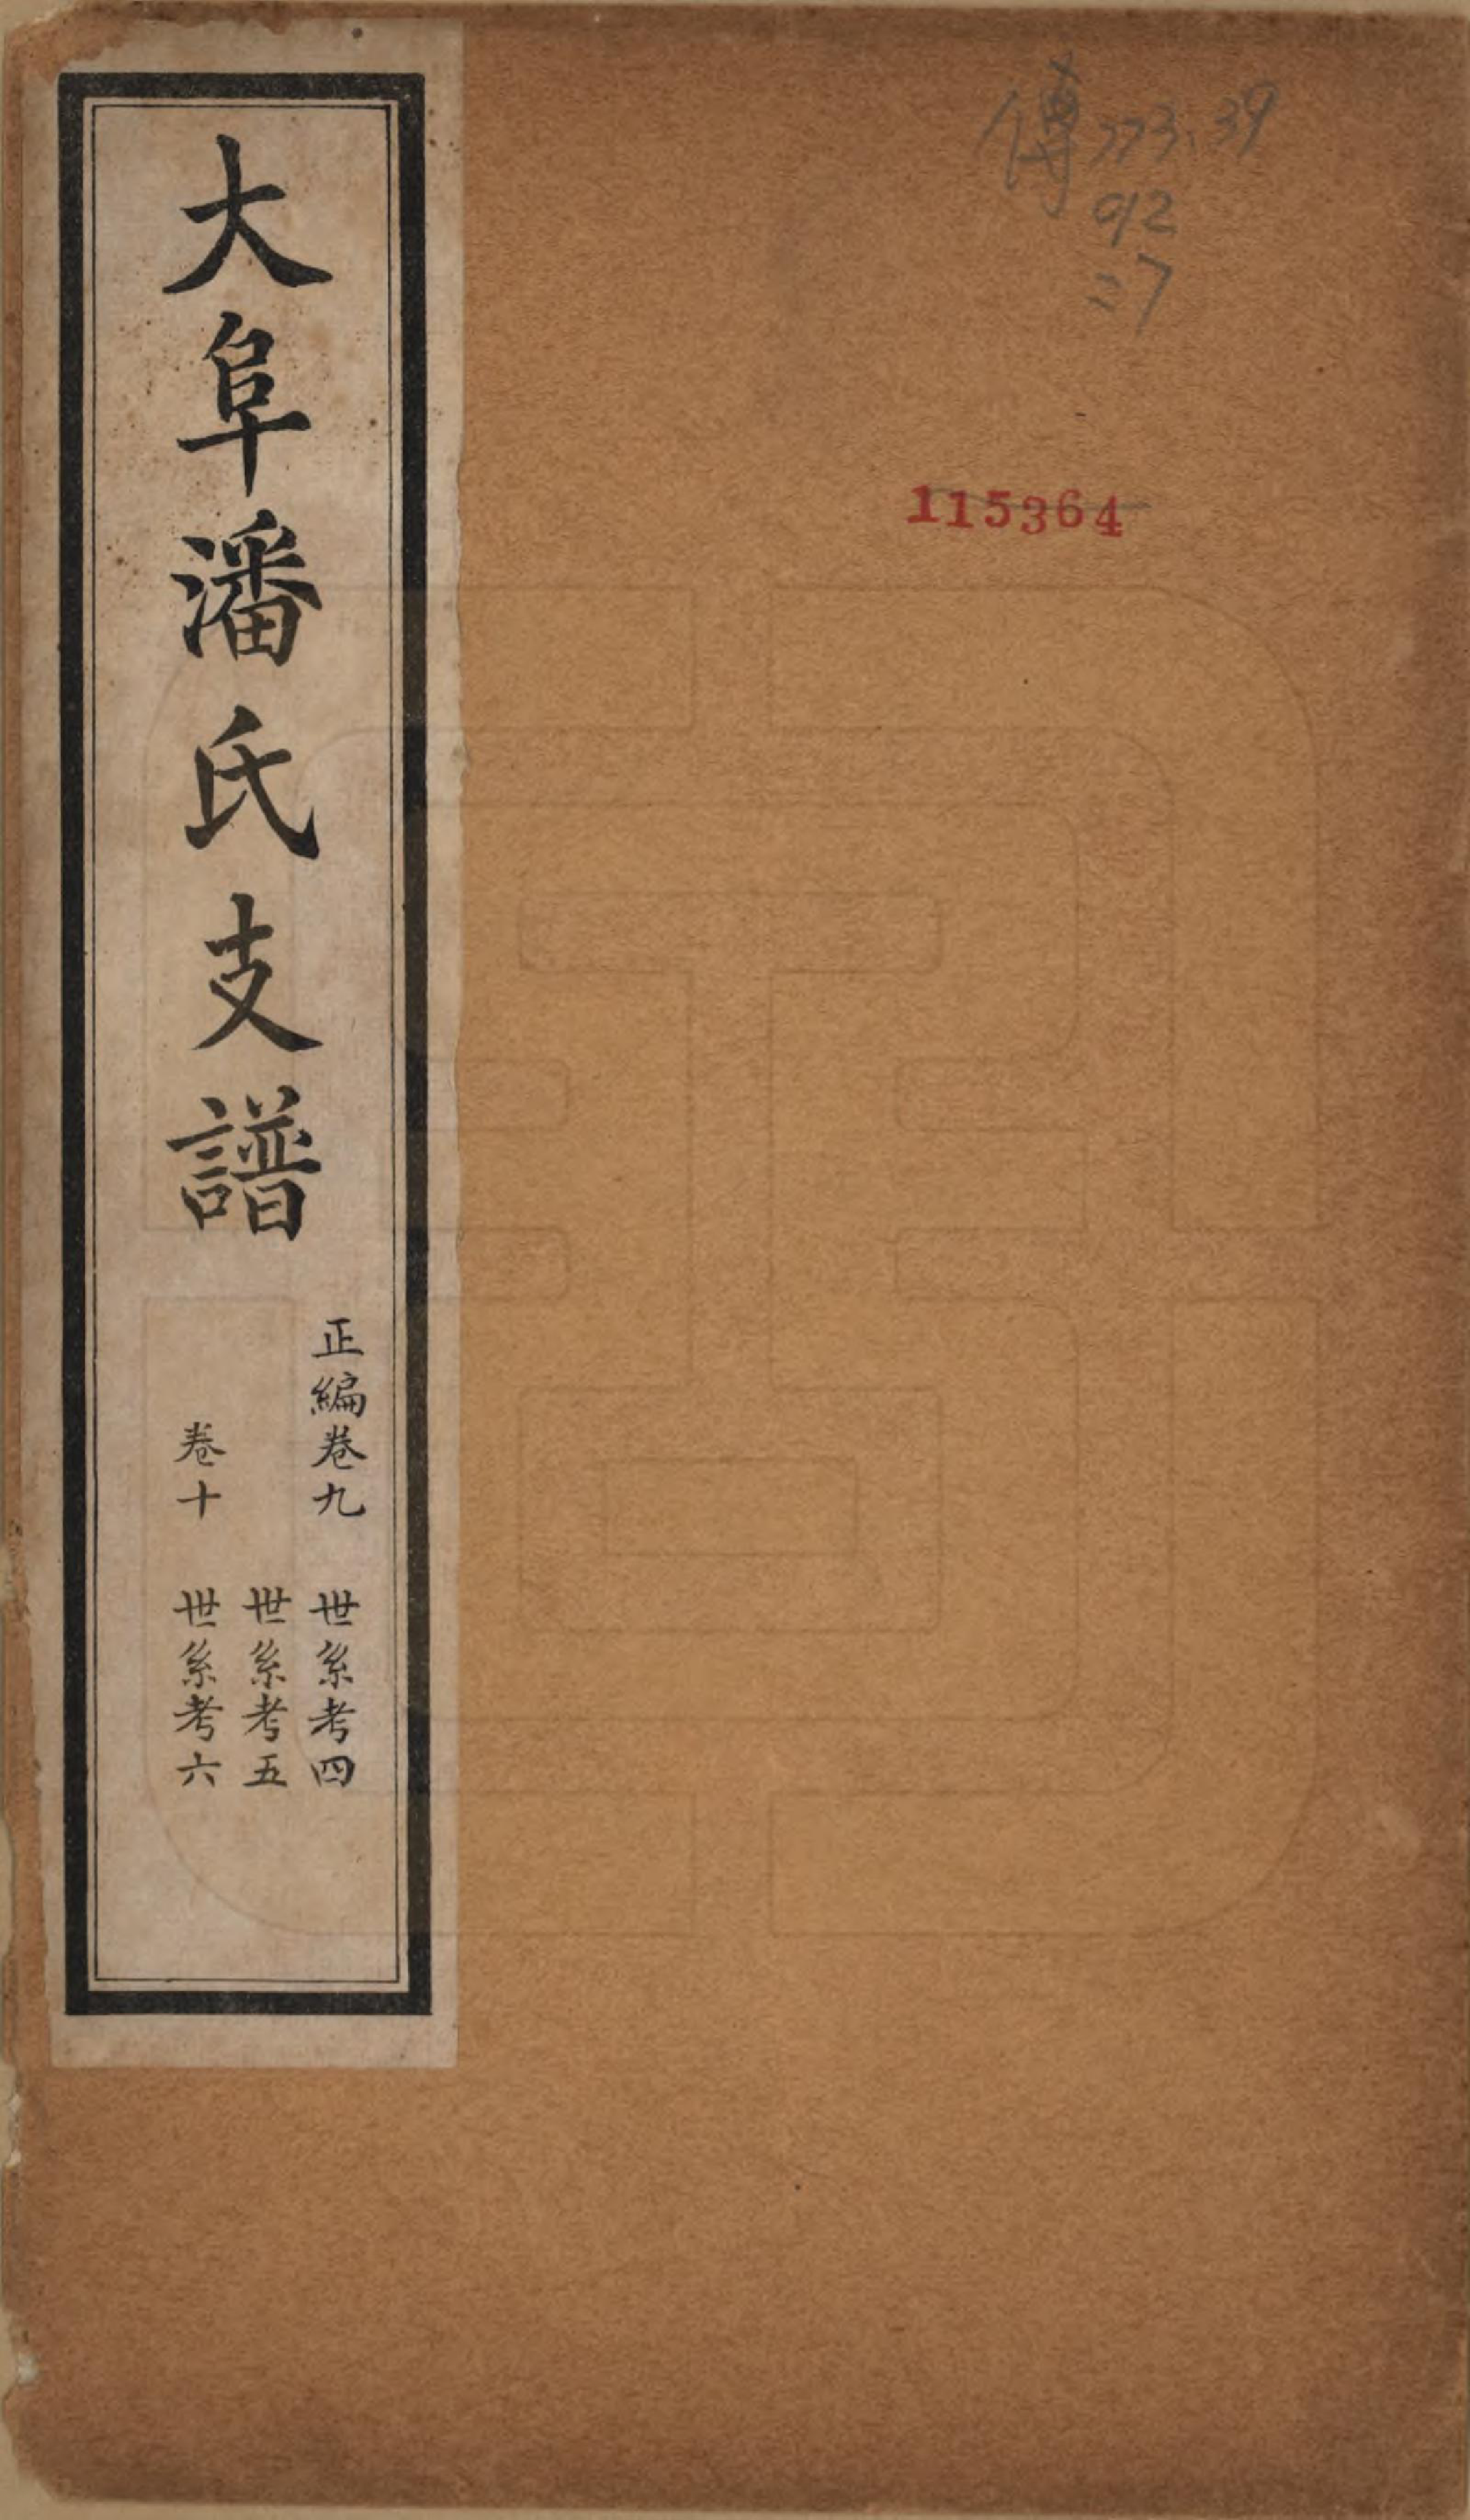 大阜潘氏支譜
正編卷九 世系考四
世系考五
卷十 世系考六
傳 773.39
912
=7
115364